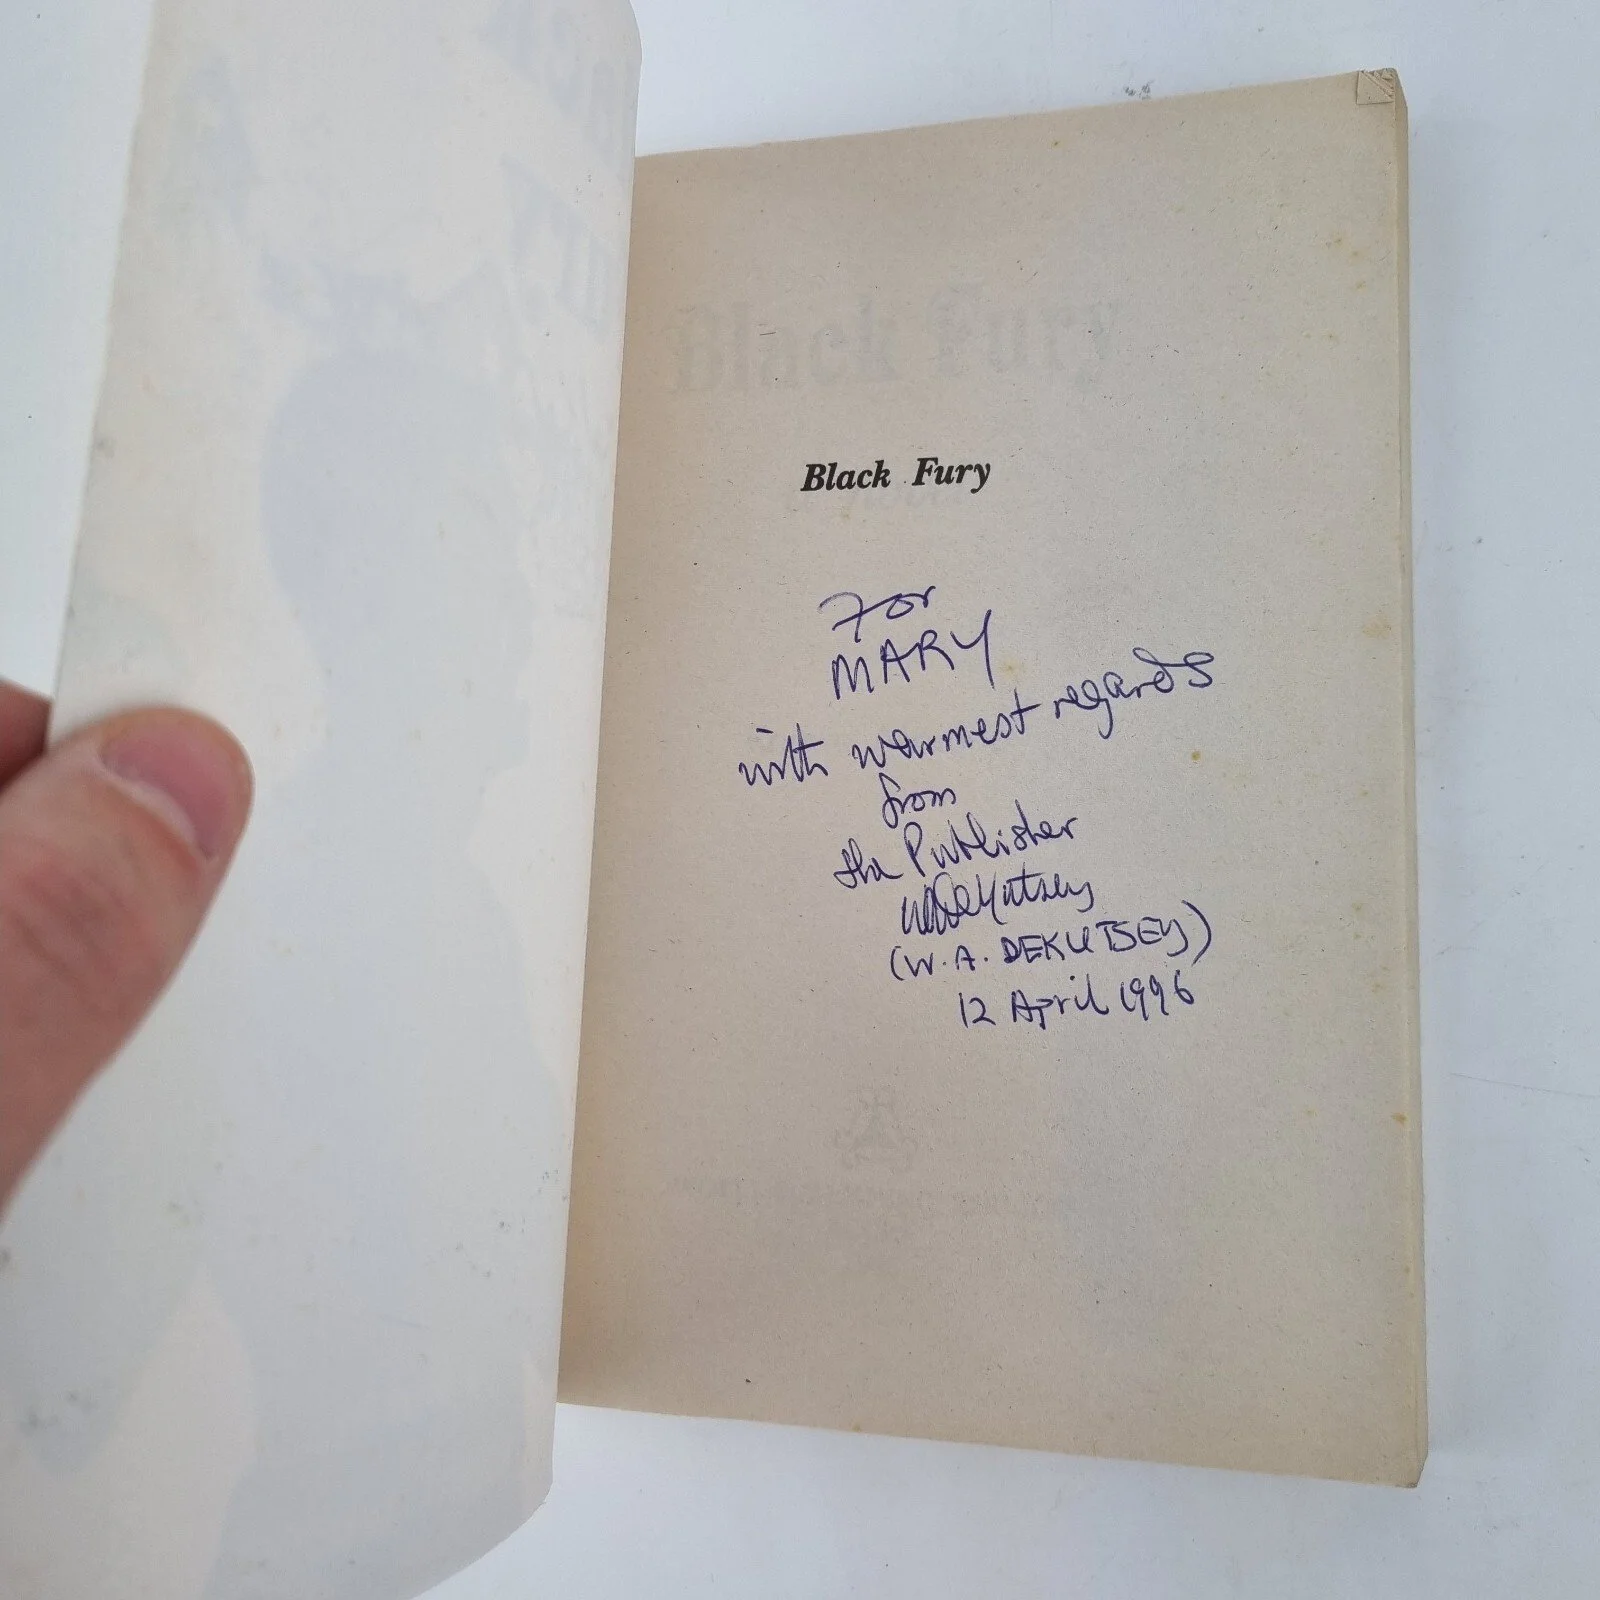 Black Fury
Black Fury
For
MARY
with warmest regards
from
the Publisher
WADeKutsey
(W. A. DEKUTSEY)
12 April 1996